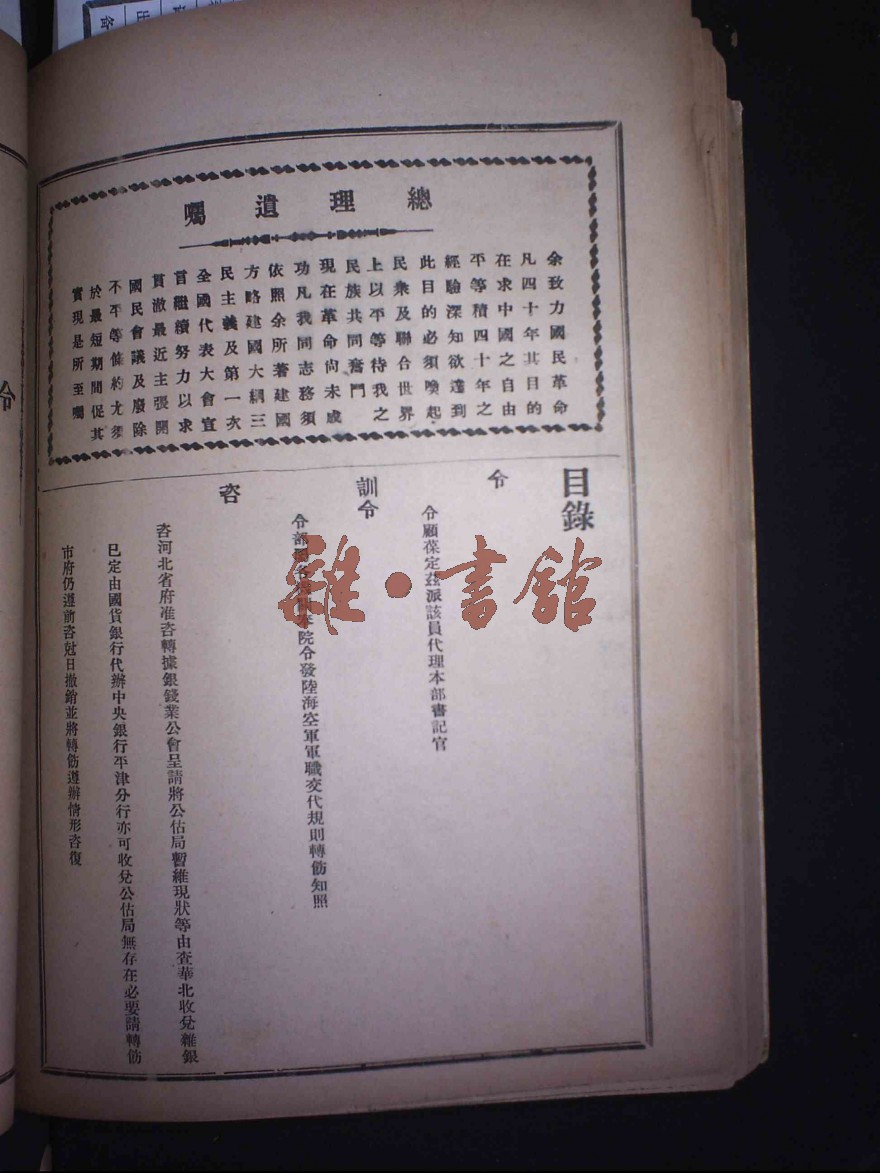 總理遺囑
余致力國民革命
凡四十年其目的
在求中國之自由
平等積四十年之
經驗深知欲達到
此目的必須喚起
民衆及聯合世界
上以平等待我之
民族共同奮鬥
現在革命尚未成
功凡我同志務須
依照余所著建國
方略建國大綱三
民主義及第一次
全國代表大會宣
言繼續努力以求
貫澈最近主張開
國民會議及廢除
不平等條約尤須
於最短期間促其
實現是所至囑
目錄
令
令顧葆定茲派該員代理本部書記官
訓令
令部 院令發陸海空軍軍職交代規則轉飭知照
咨
咨河北省府准咨轉據銀錢業公會呈請將公估局暫維現狀等由查華北收兌雜銀
已定由國貨銀行代辦中央銀行平津分行亦可收兌公估局無存在必要請轉飭
市府仍遵前咨尅日撤銷並將轉飭遵辦情形咨復
雜·書館
令